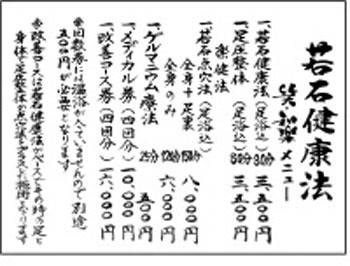 若石健康法
笑楽 メニュー
一、若石健康法(足浴込) 30分 三、五〇〇円
一、足圧整体(足浴込) 30分 三、五〇〇円
楽健法
一、若石点穴法(足浴込)
全身+足裏 150分 八、〇〇〇円
全身のみ 120分 六、〇〇〇円
一、ゲルマニウム療法 25分 五〇〇円
一、メディカル券(四回分) 一〇、〇〇〇円
一、改善コース券(四回分) 一六、〇〇〇円
※回数券には温浴が入ていませんので別途
五〇〇円が必要となります
※改善コースは若石健康法がベースでその時の足と
身体で足圧整体か点穴法をプラスした施術となります